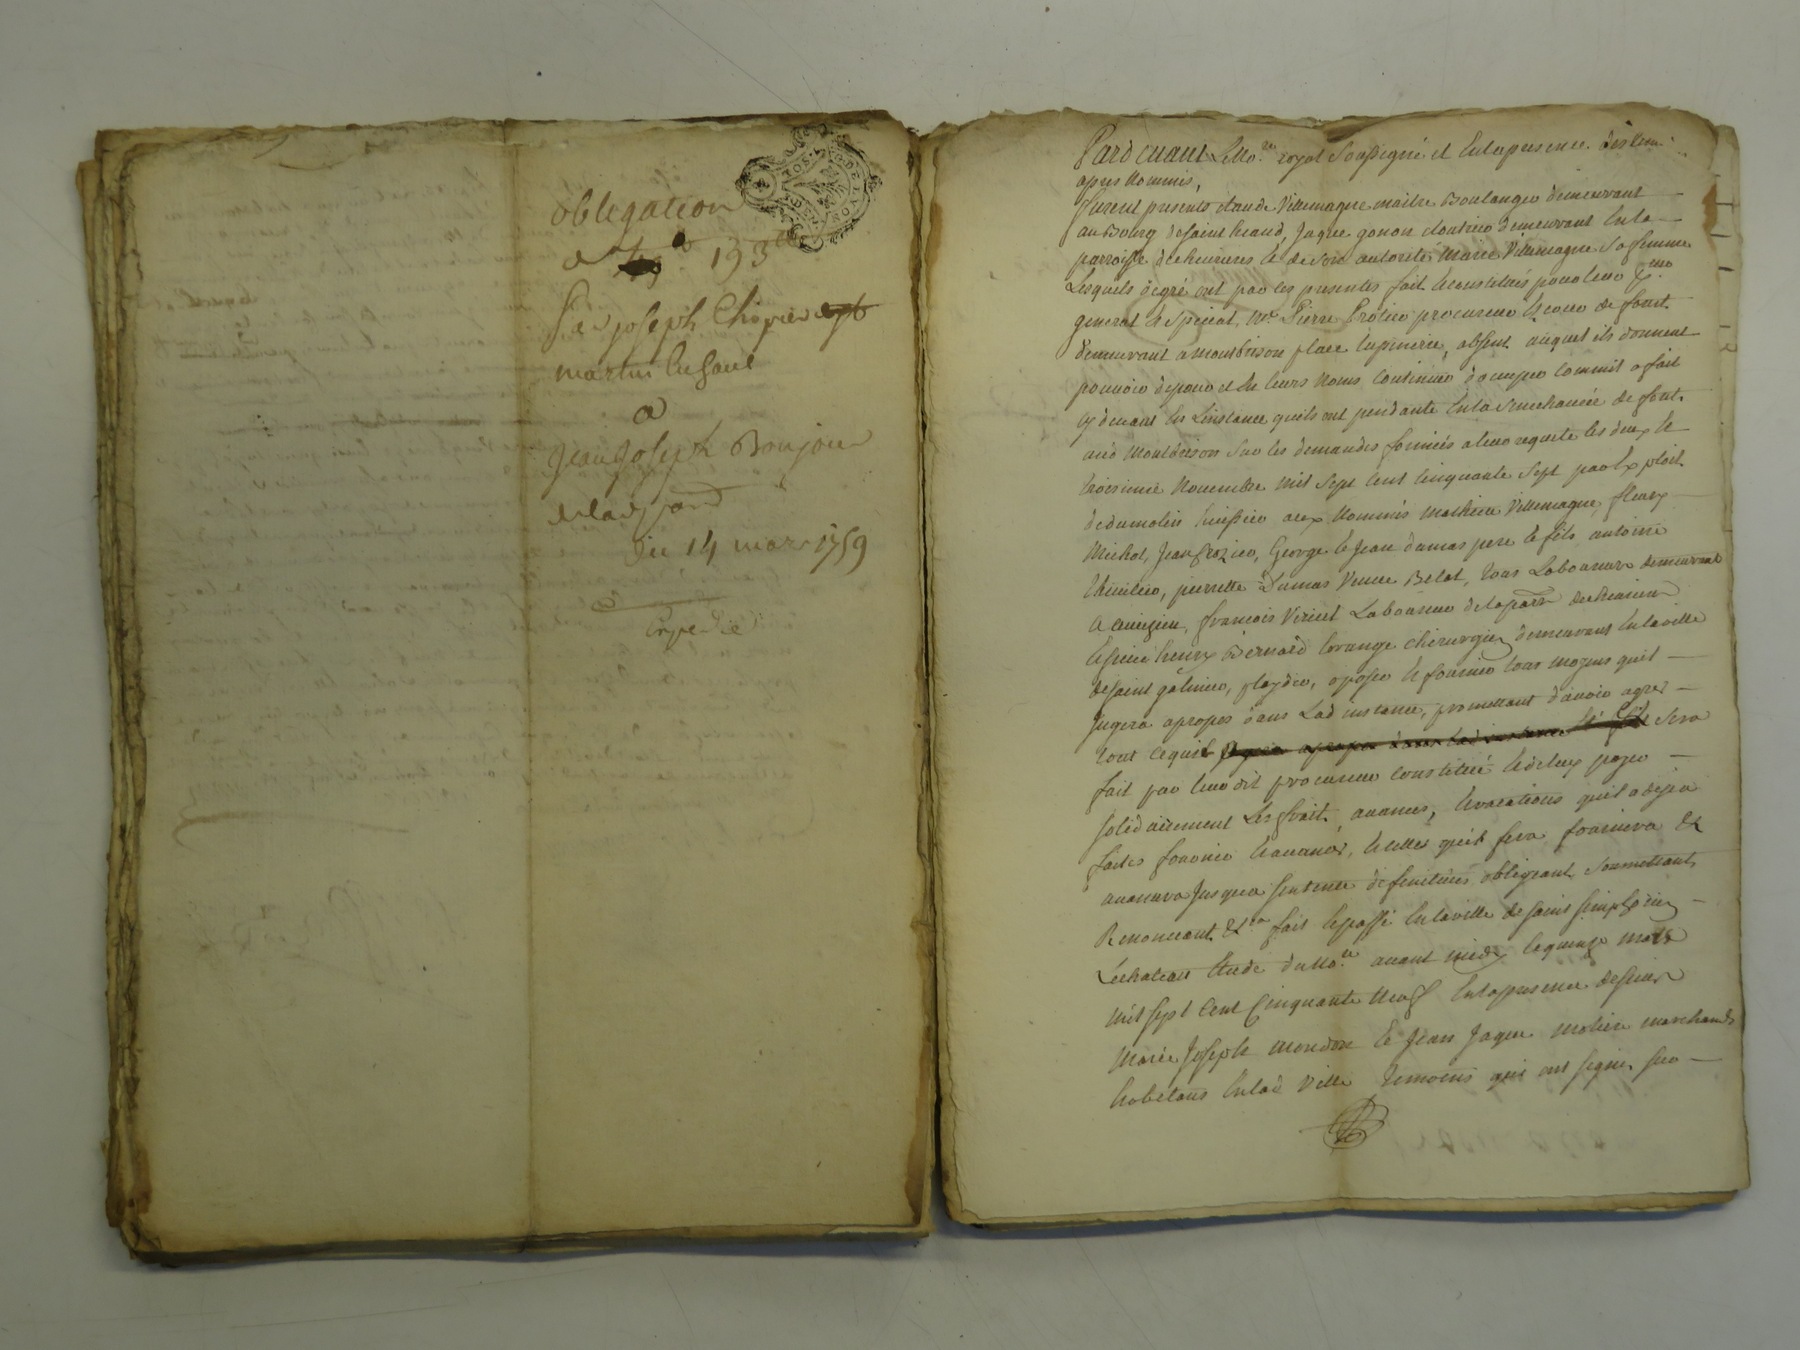 obligation
de 193ᵗᵗ
Par joseph Chopier et
martin Enfant
a
Jean Joseph Boujon
de lad par
du 14 mars 1759
Expedié
Pardevant Le No.re royal Soussigné et En la presence des tem.
apres Nommés,
furent presents Claude Villemagne maitre Boulanger demeurant
au Bourg de saint heand, Jaque gonon cloutier demeurant En la
parroisse de cheurieres & de son autorité Marie Villemagne Sa femme
Lesquels de gré ont par les presentes fait & constitués pour leur
general & special, Me. Pierre procureur Es cour de forest
demeurant a montbrison place lupinerie, absent auquel ils donnent
pouvoir de pour et En leurs Noms Continuer d'ocuper Comme il a fait
cy devant En L'instance quils ont pendante En la Senechaucée de forest
aud Montbrison Sur les demandes formées a leur requete les deux &
troisieme Novembre mil Sept Cent Cinquante Sept par Exploit
de dumolin huissier aux Nommés Mathieu Villemagne, fleury
Michot, Jean Crozier, George & Jean dumas pere & fils antoine
Thivilier, pierrette Dumas Veuve Belat, tous Laboureurs demeurant
a aveizieu, francois Virieu Laboureur de la parr de
& sieur henry Bernard lorange Chirurgien demeurant En la ville
de saint galmier, playder, oposer & fournir tous moyens quil
Jugera apropos dans Lad instance, promettant d'avoir agrée
tout cequil Jugera apropos dans lad instance Sera
fait par leur dit procureur Constitué & de luy payer
solidairement Les frait, avances, & vacations quil a deja
faites fournies & avancés, & celles quil fera fournira &
avancera Jusqua Sentence definitive, obligeant Soumettant,
Renonceant &.a fait & passé En la ville de saint simphorien
Le chateau Etude du No.re avant midy le quinze mars
mil sept Cent Cinquante Neuf En la presence de sieur
Marie Joseph mondon & Jean Jaque moliere marchands
habitans En lad Ville temoins qui ont signé, Non